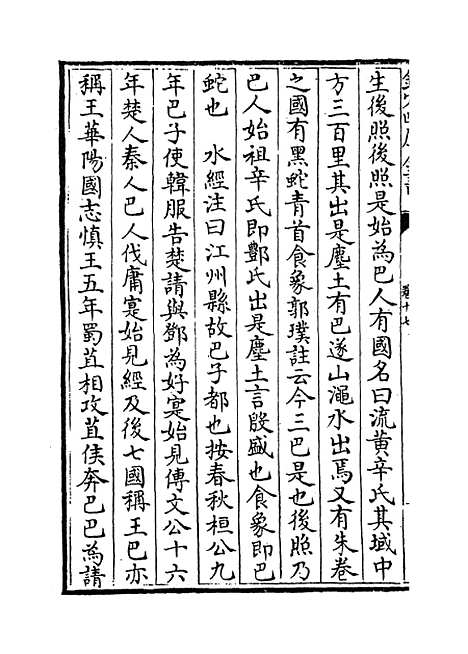 欽定四庫全書
卷十七
生後照後照是始為巴人有國名曰流黄辛氏其域中
方三百里其出是塵土有巴遂山澠水出焉又有朱卷
之國有黑蛇青首食象郭璞註云今三巴是也後照乃
巴人始祖辛氏即酆氏出是塵土言殷盛也食象即巴
蛇也　水經注曰江州縣故巴子都也按春秋桓公九
年巴子使韓服告楚請與鄧為好寔始見傳文公十六
年楚人秦人巴人伐庸寔始見經及後七國稱王巴亦
稱王華陽國志慎王五年蜀苴相攻苴侯奔巴巴為請